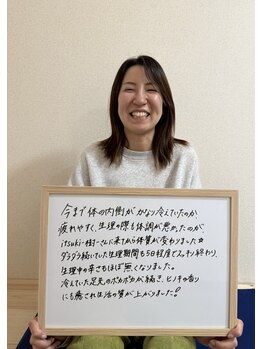 今まで体の内側がかなり冷えていたのか
疲れやすく、生理の際も体調が悪かったのが
itsuki-樹-さんに来てから体質が変わりました☆
ダラダラ続いていた生理期間も5日程度でスッキリ終わり、
生理中の辛さもほぼ無くなりました。
冷えていた足先のポカポカが続き、ヒノキの香り
にも癒され生活の質が上がりました!